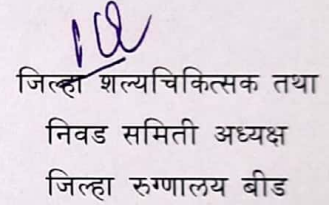 जिल्हा शल्यचिकित्सक तथा
निवड समिती अध्यक्ष
जिल्हा रुग्णालय बीड